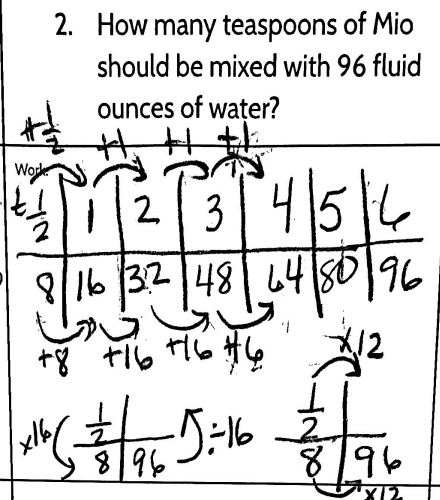 2. How many teaspoons of Mio
should be mixed with 96 fluid
ounces of water?
+1/2 +1 +1 +1
Work:
t 1/2 | 1 | 2 | 3 | 4 | 5 | 6
8 | 16 | 32 | 48 | 64 | 80 | 96
+8 +16 +16 +16
x12
x16 1/2 ÷16 1/2
8 | 96 8 | 96
x12